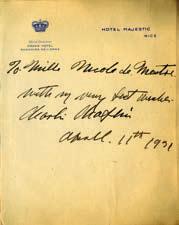 HOTEL MAJESTIC
NICE
GRAND HOTEL
To Mlle Nicole de
with my very best wishes
Charlie Chaplin
April. 11th 1931